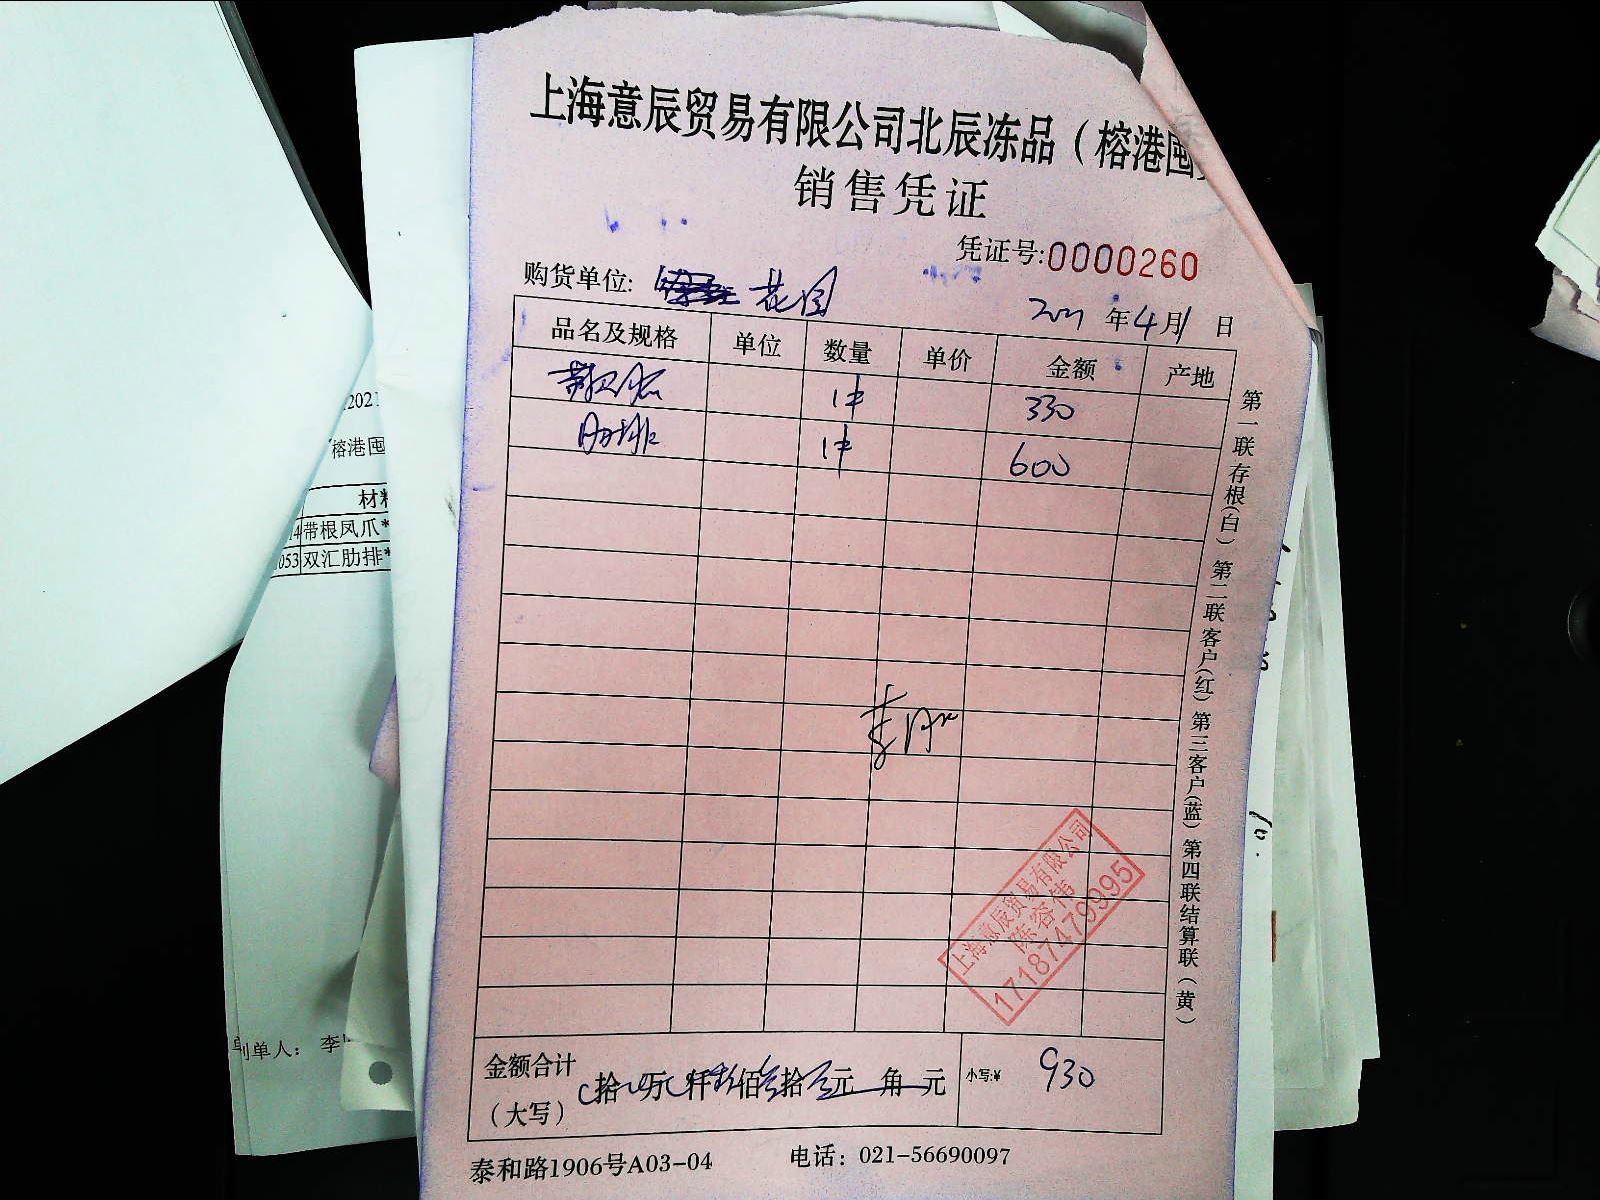 上海意辰贸易有限公司北辰冻品（榕港囤
销售凭证
凭证号:0000260
购货单位: 花园
2021 年 4 月 1 日
品名及规格 单位 数量 单价 金额 产地
1件 330
肋排 1件 600
第一联存根(白) 第二联客户(红) 第三客户(蓝) 第四联结算联(黄)
上海意辰贸易有限公司
陈容伟
17187479995
金额合计
(大写)
拾 万 仟 玖佰叁拾 元 角 元 小写:¥ 930
泰和路1906号A03-04 电话: 021-56690097
2021
榕港囤
材料
带根凤爪*
053 双汇肋排*
制单人: 李